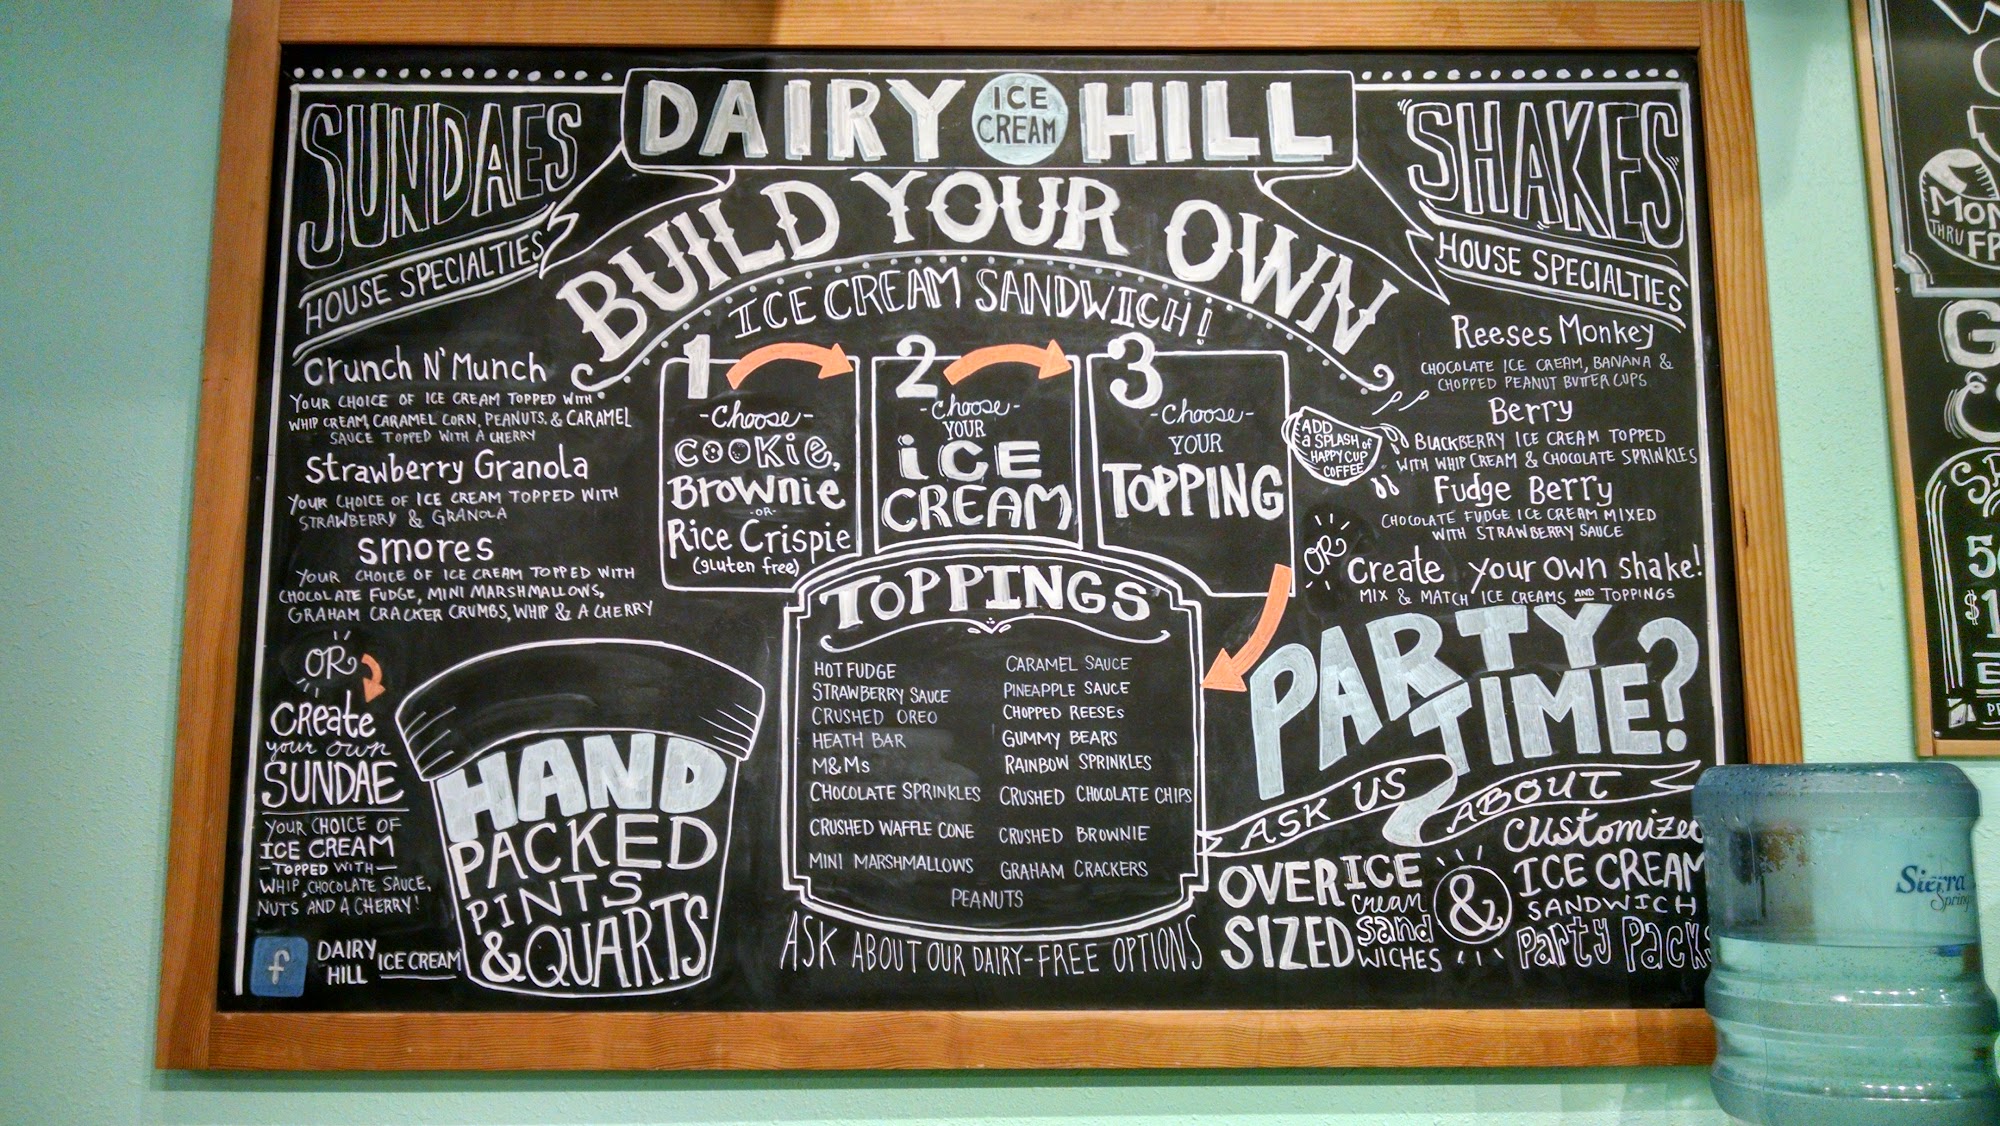 DAIRY ICE CREAM HILL
BUILD YOUR OWN
ICE CREAM SANDWICH!
SUNDAES
HOUSE SPECIALTIES
Crunch N' Munch
YOUR CHOICE OF ICE CREAM TOPPED WITH
WHIP CREAM, CARAMEL CORN, PEANUTS, & CARAMEL
SAUCE TOPPED WITH A CHERRY
Strawberry Granola
YOUR CHOICE OF ICE CREAM TOPPED WITH
STRAWBERRY & GRANOLA
smores
YOUR CHOICE OF ICE CREAM TOPPED WITH
CHOCOLATE FUDGE, MINI MARSHMALLOWS,
GRAHAM CRACKER CRUMBS, WHIP & A CHERRY
OR
Create
your own
SUNDAE
YOUR CHOICE OF
ICE CREAM
-TOPPED WITH-
WHIP, CHOCOLATE SAUCE,
NUTS AND A CHERRY!
f
DAIRY
HILL
ICE CREAM
HAND
PACKED
PINTS
& QUARTS
1
-Choose-
COOKIE,
Brownie
-OR-
Rice Crispie
(gluten free)
2
-Choose-
YOUR
iCE
CREAM
3
-Choose-
YOUR
TOPPING
TOPPINGS
HOT FUDGE
STRAWBERRY SAUCE
CRUSHED OREO
HEATH BAR
M&Ms
CHOCOLATE SPRINKLES
CRUSHED WAFFLE CONE
MINI MARSHMALLOWS
CARAMEL SAUCE
PINEAPPLE SAUCE
CHOPPED REESES
GUMMY BEARS
RAINBOW SPRINKLES
CRUSHED CHOCOLATE CHIPS
CRUSHED BROWNIE
GRAHAM CRACKERS
PEANUTS
ASK ABOUT OUR DAIRY-FREE OPTIONS
SHAKES
HOUSE SPECIALTIES
Reeses Monkey
CHOCOLATE ICE CREAM, BANANA &
CHOPPED PEANUT BUTTER CUPS
Berry
BLACKBERRY ICE CREAM TOPPED
WITH WHIP CREAM & CHOCOLATE SPRINKLES
Fudge Berry
CHOCOLATE FUDGE ICE CREAM MIXED
WITH STRAWBERRY SAUCE
ADD
a SPLASH of
HAPPY CUP
COFFEE
OR
Create your own shake!
MIX & MATCH ICE CREAMS AND TOPPINGS
PARTY
TIME?
ASK US ABOUT
OVER
SIZED
ICE
cream
sand
WICHES
&
customized
ICE CREAM
SANDWICH
Party Packs
Sierra
Spring
MON
THRU FR